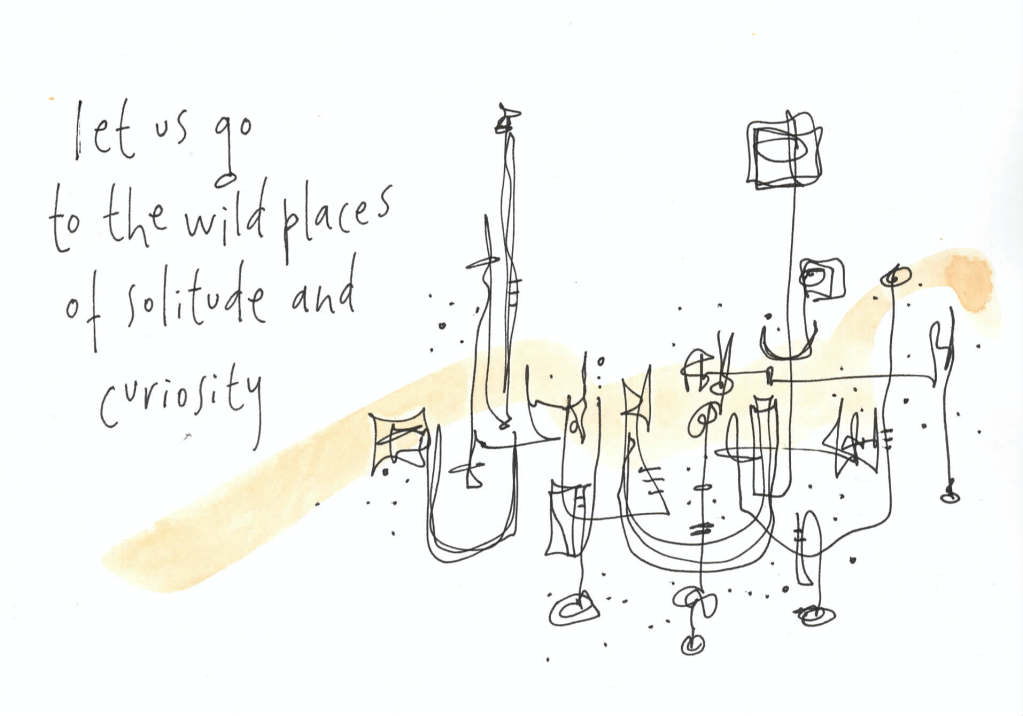 let us go
to the wild places
of solitude and
curiosity